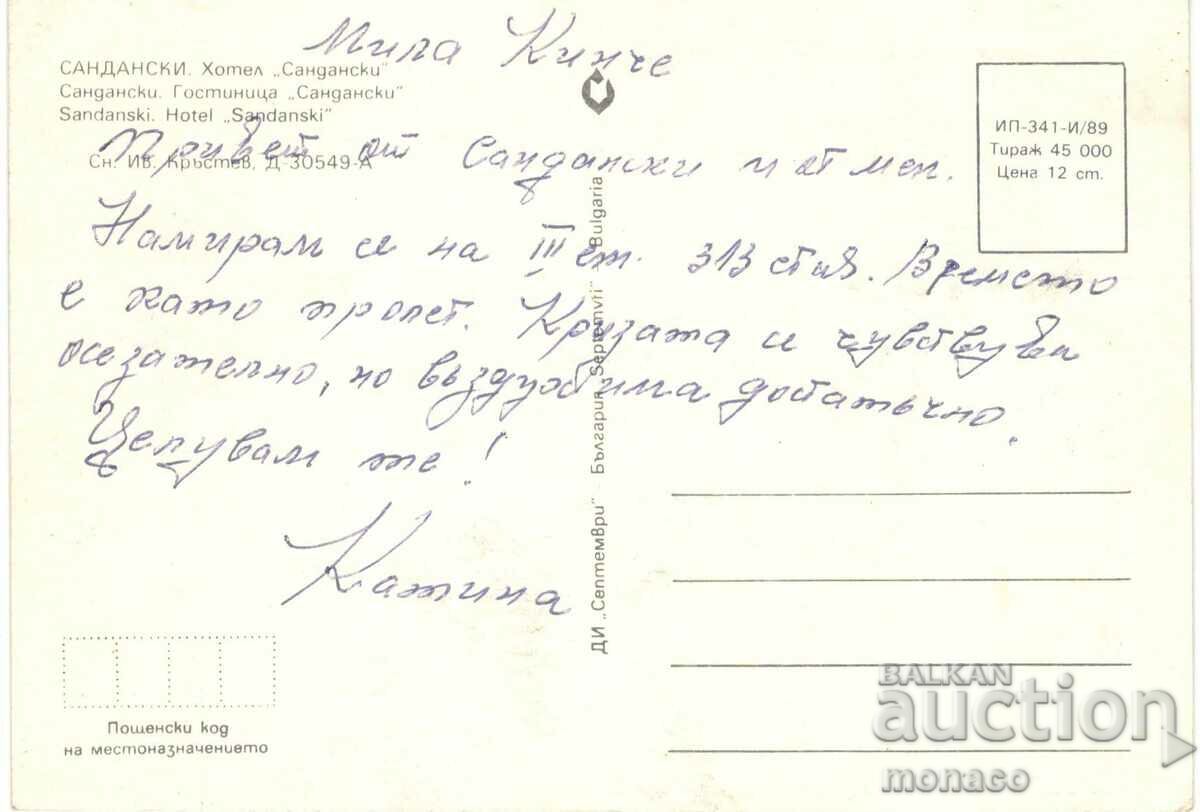 Мила Кинче
САНДАНСКИ. Хотел „Сандански"
Сандански. Гостиница „Сандански"
Sandanski. Hotel „Sandanski"
Сн. Ив. Кръстев, Д-30549-А
ИП-341-И/89
Тираж 45 000
Цена 12 ст.
Привет от Сандански и от мен.
Намирам се на III ет. 313 стая. Времето
е като пролет. Кризата се чувствува
осезателно, но въздух има достатъчно.
Целувам те!
Катина
ДИ „Септември" България „Septemvri" Bulgaria
Пощенски код
на местоназначението
BALKAN
auction
monaco